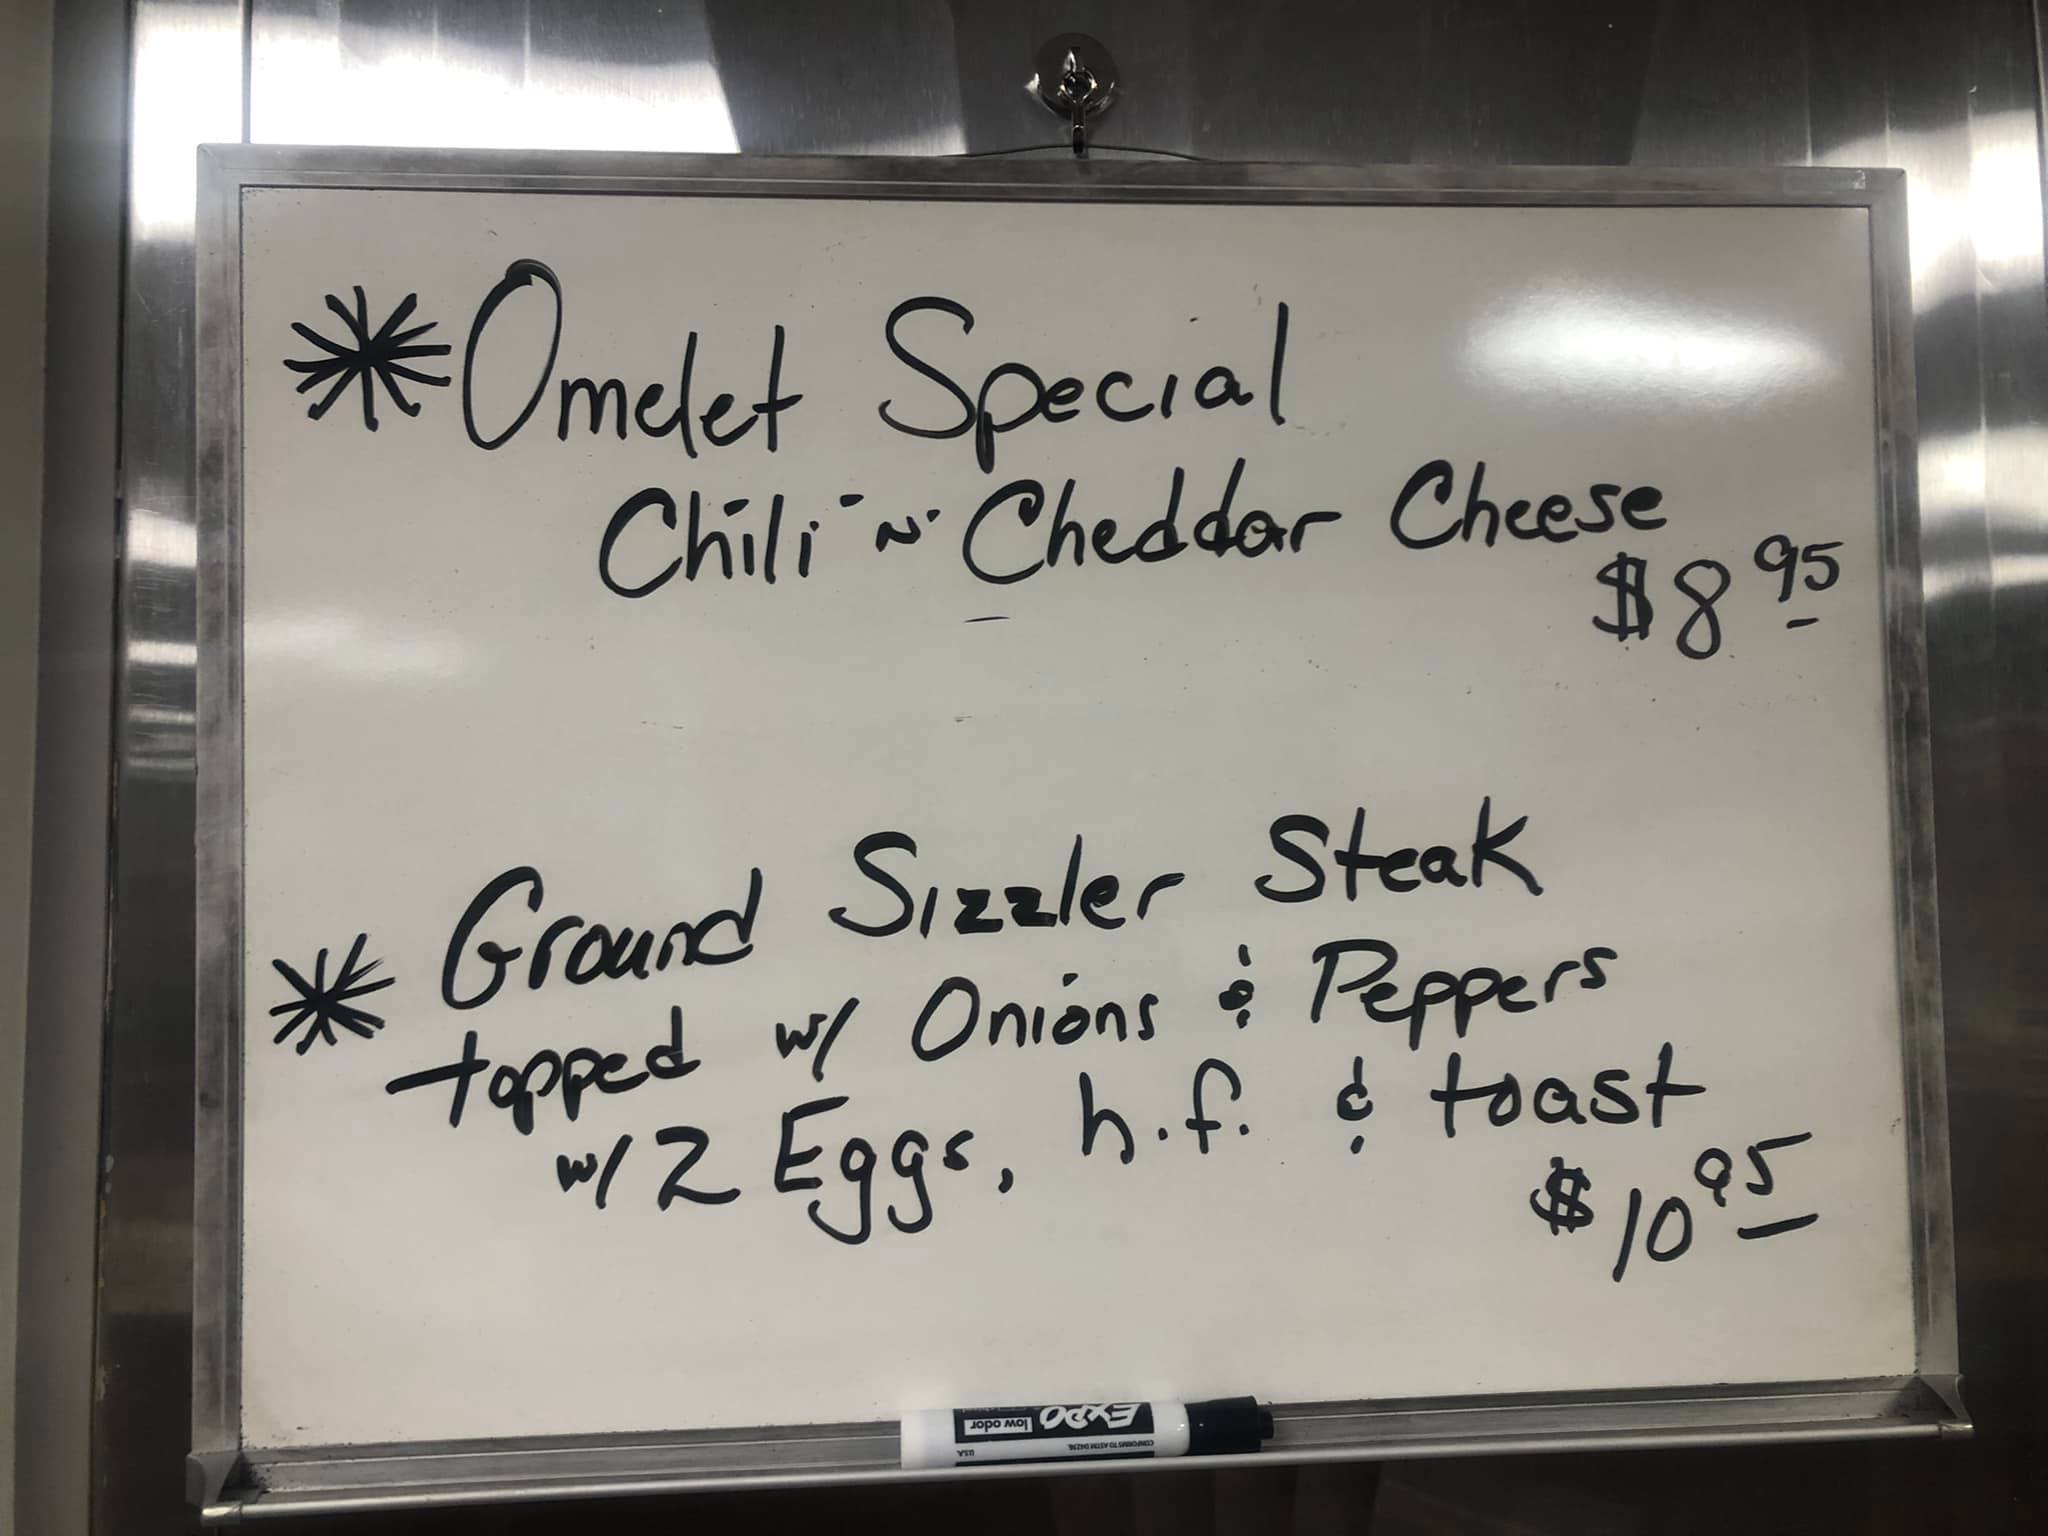 Omelet Special
Chili "N" Cheddar Cheese
$8 95
Ground Sizzler Steak
topped w/ Onions & Peppers
w/ 2 Eggs, h.f. & toast
$10 95
EXPO
low odor
CONFORMS TO ASTM D4236
USA